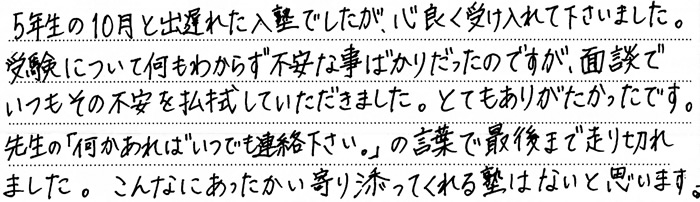 5年生の10月と出遅れた入塾でしたが、心良く受け入れて下さいました。
受験について何もわからず不安な事ばかりだったのですが、面談で
いつもその不安を払拭していただきました。とてもありがたかったです。
先生の「何かあれば"いつでも連絡下さい。」の言葉で最後まで走り切れ
ました。こんなにあったかい寄り添ってくれる塾はないと思います。